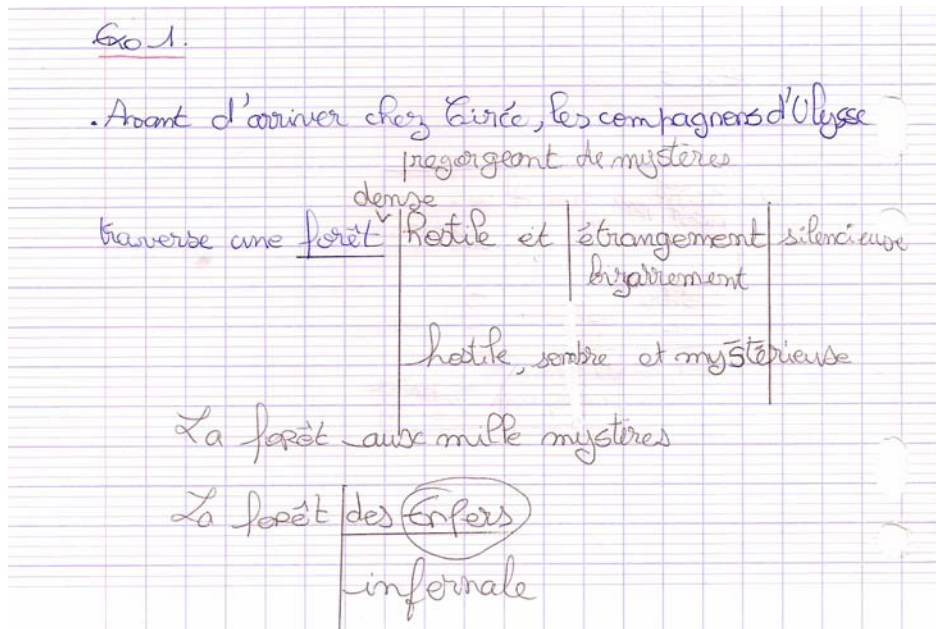 Exo 1.
. Avant d'arriver chez Circée, les compagnens d'Ulysse
pregorgeant de mystères
dense
traverse une forêt hostile et étrangement silencieuse
bizarrement
hostile, sombre et mystérieuse
La forêt aux mille mystères
La forêt des Enfers
infernale